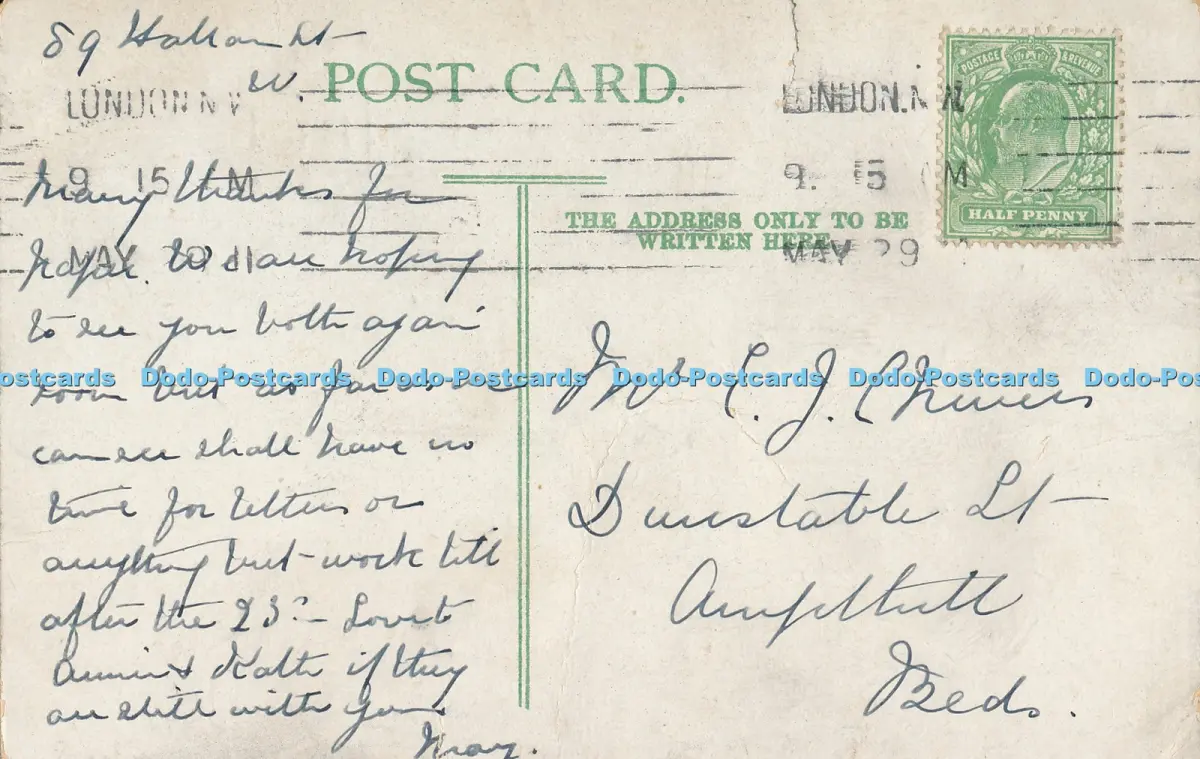 89 Hallam St
W.
POST CARD.
LONDON.N.W
9. 15 M
MAY 29 11
Many thanks for
to see you both again
soon but as far as we
can see shall have no
time for letters or
anything but work till
after the 23rd – Love to
Annie & Kate if they
are still with you.
May.
LONDON.N.W
9. 15 M
MAY 29
POSTAGE & REVENUE
HALF PENNY
THE ADDRESS ONLY TO BE
WRITTEN HERE
Mrs C. J. Chivers
Dunstable St
Ampthill
Beds.
Dodo-Postcards Dodo-Postcards Dodo-Postcards Dodo-Postcards Dodo-Postcards